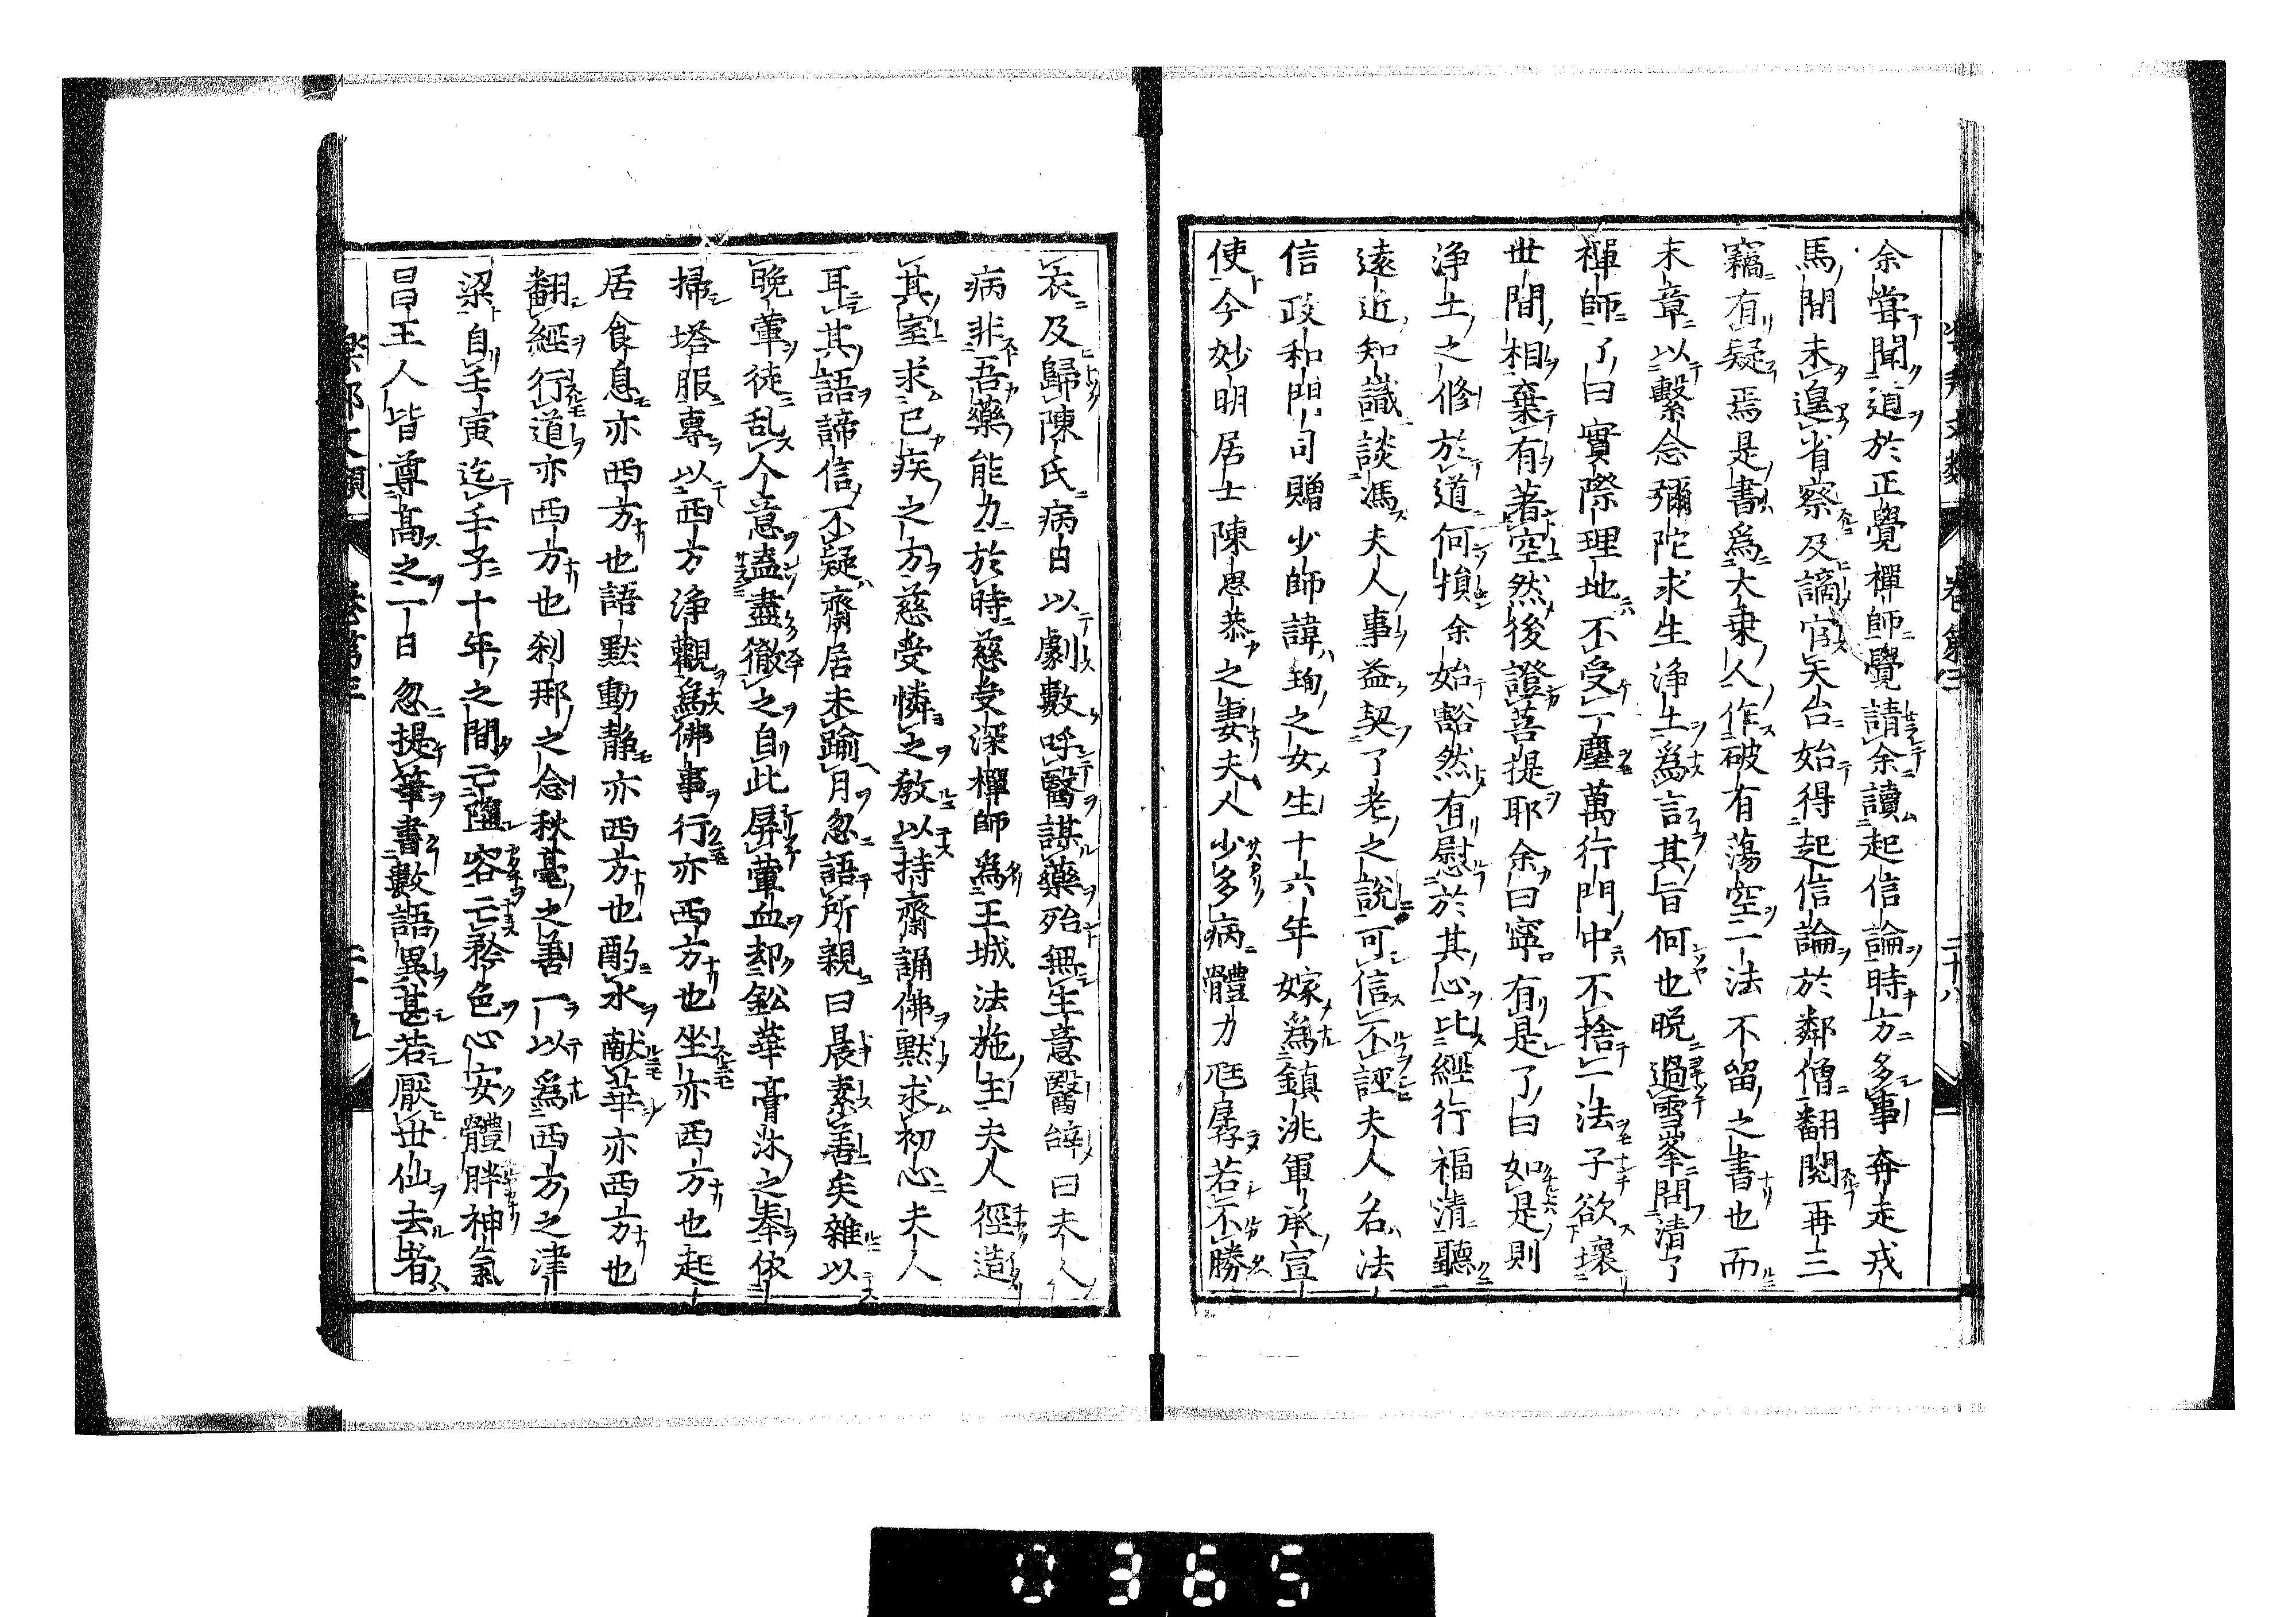 樂邦文類 卷第三 二十八
余嘗聞道於正覺禪師覺請余讀起信論時方多事奔走戎
馬間未遑省察及謫官天台始得起信論於鄰僧翻閱再三
竊有疑焉是書爲大乗人作破有蕩空一法不留之書也而
末章以繫念彌陀求生淨土爲言其旨何也晚過雪峯問清了
禪師了曰實際理地不受一塵萬行門中不捨一法子欲壞
世間相棄有著空然後證菩提耶余曰寧有是了曰如是則
淨土之修於道何損余始豁然有慰於其心比經行福清聽
遠近知識談馮夫人事益契了老之說可信不誣夫人名法
信政和門司贈少師諱珣之女生十六年嫁爲鎮洮軍承宣
使今妙明居士陳思恭之妻夫人少多病體力尫孱若不勝
衣及歸陳氏病日以劇數呼醫謀藥殆無生意醫辞曰夫人
病非吾藥能力於時慈受深禪師爲王城法施主夫人徑造
其室求已疾之方慈受憐之教以持齋誦佛默求初心夫人
耳其語諦信不疑齋居未踰月忽語所親曰晨素善矣雜以
晚葷徒乱人意盍盡徹之自此屏葷血却鈆華膏沐之奉依
掃塔服專以西方淨觀爲佛事行亦西方也坐亦西方也起
居食息亦西方也語默動静亦西方也酌水献華亦西方也
翻經行道亦西方也刹那之念秋毫之善一以爲西方之津
梁自壬寅迄壬子十年之間亡墮容亡矜色心安體胖神氣
昌王人皆尊髙之一日忽提筆書數語異甚若厭世仙去者
樂邦文類 卷第三 二十九
0365